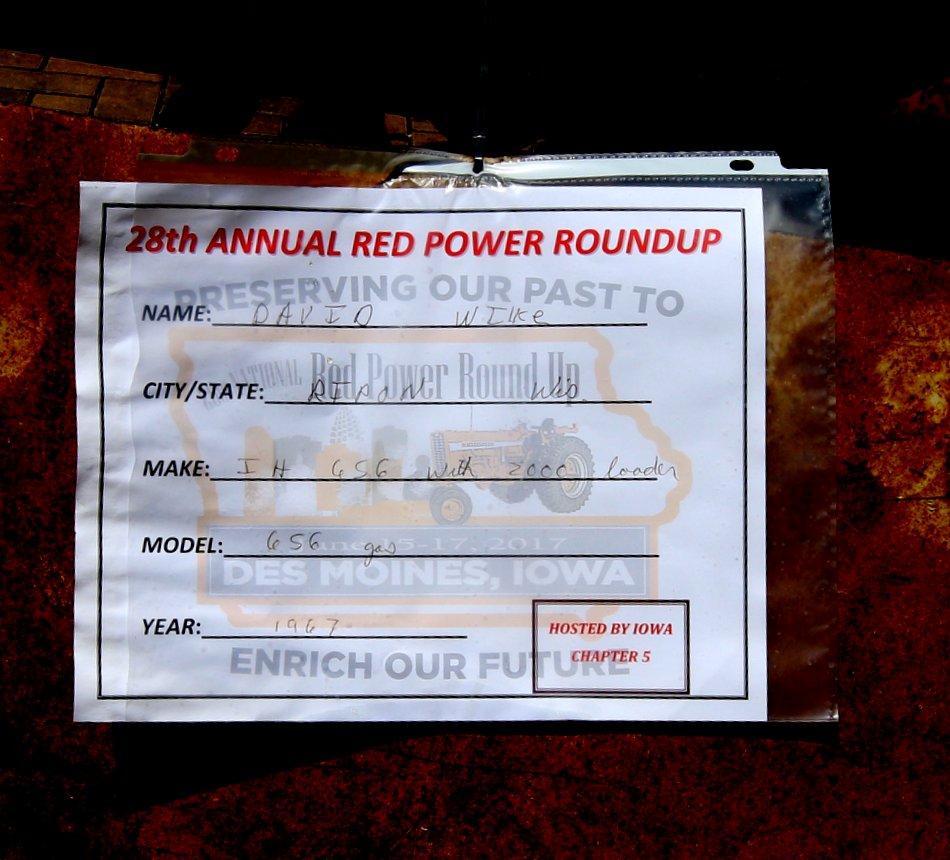 28th ANNUAL RED POWER ROUNDUP
PRESERVING OUR PAST TO
NAME: DAVID WIlke
NATIONAL Red Power Round Up
CITY/STATE: RIPON Wis.
MAKE: IH 656 with 2000 loader
MODEL: 656 gas
June 15-17, 2017
DES MOINES, IOWA
YEAR: 1967
HOSTED BY IOWA
CHAPTER 5
ENRICH OUR FUTURE